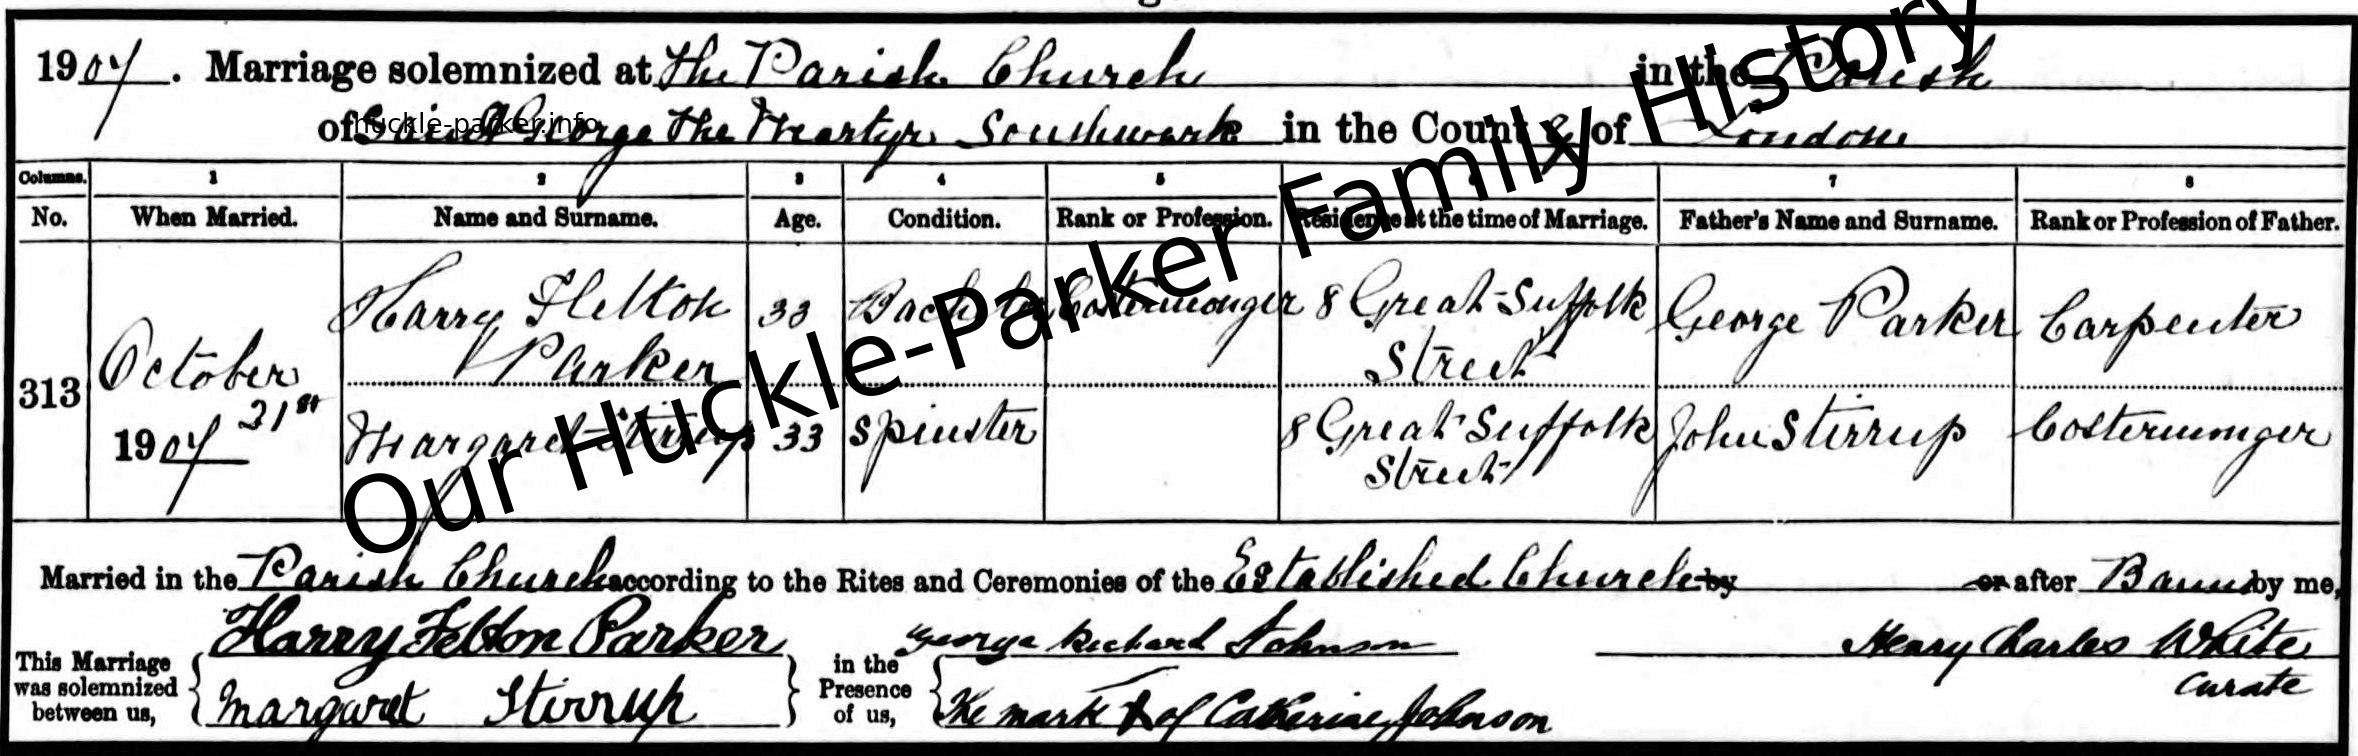 1907. Marriage solemnized at The Parish Church in the Parish
of Saint George The Martyr Southwark in the County of London
huckle-parker.info
Our Huckle-Parker Family History
Columns. 1 2 3 4 5 6 7 8
No. When Married. Name and Surname. Age. Condition. Rank or Profession. Residence at the time of Marriage. Father's Name and Surname. Rank or Profession of Father.
313 October 31st 1907
Harry Felton Parker 33 Bachelor Costermonger 8 Great Suffolk Street George Parker Carpenter
Margaret Stirrup 33 Spinster 8 Great Suffolk Street John Stirrup Costermonger
Married in the Parish Church according to the Rites and Ceremonies of the Established Church by or after Banns by me,
Harry Felton Parker George Richard Johnson Henry Charles White
This Marriage was solemnized between us, in the Presence of us, Curate
Margaret Stirrup The mark X of Catherine Johnson